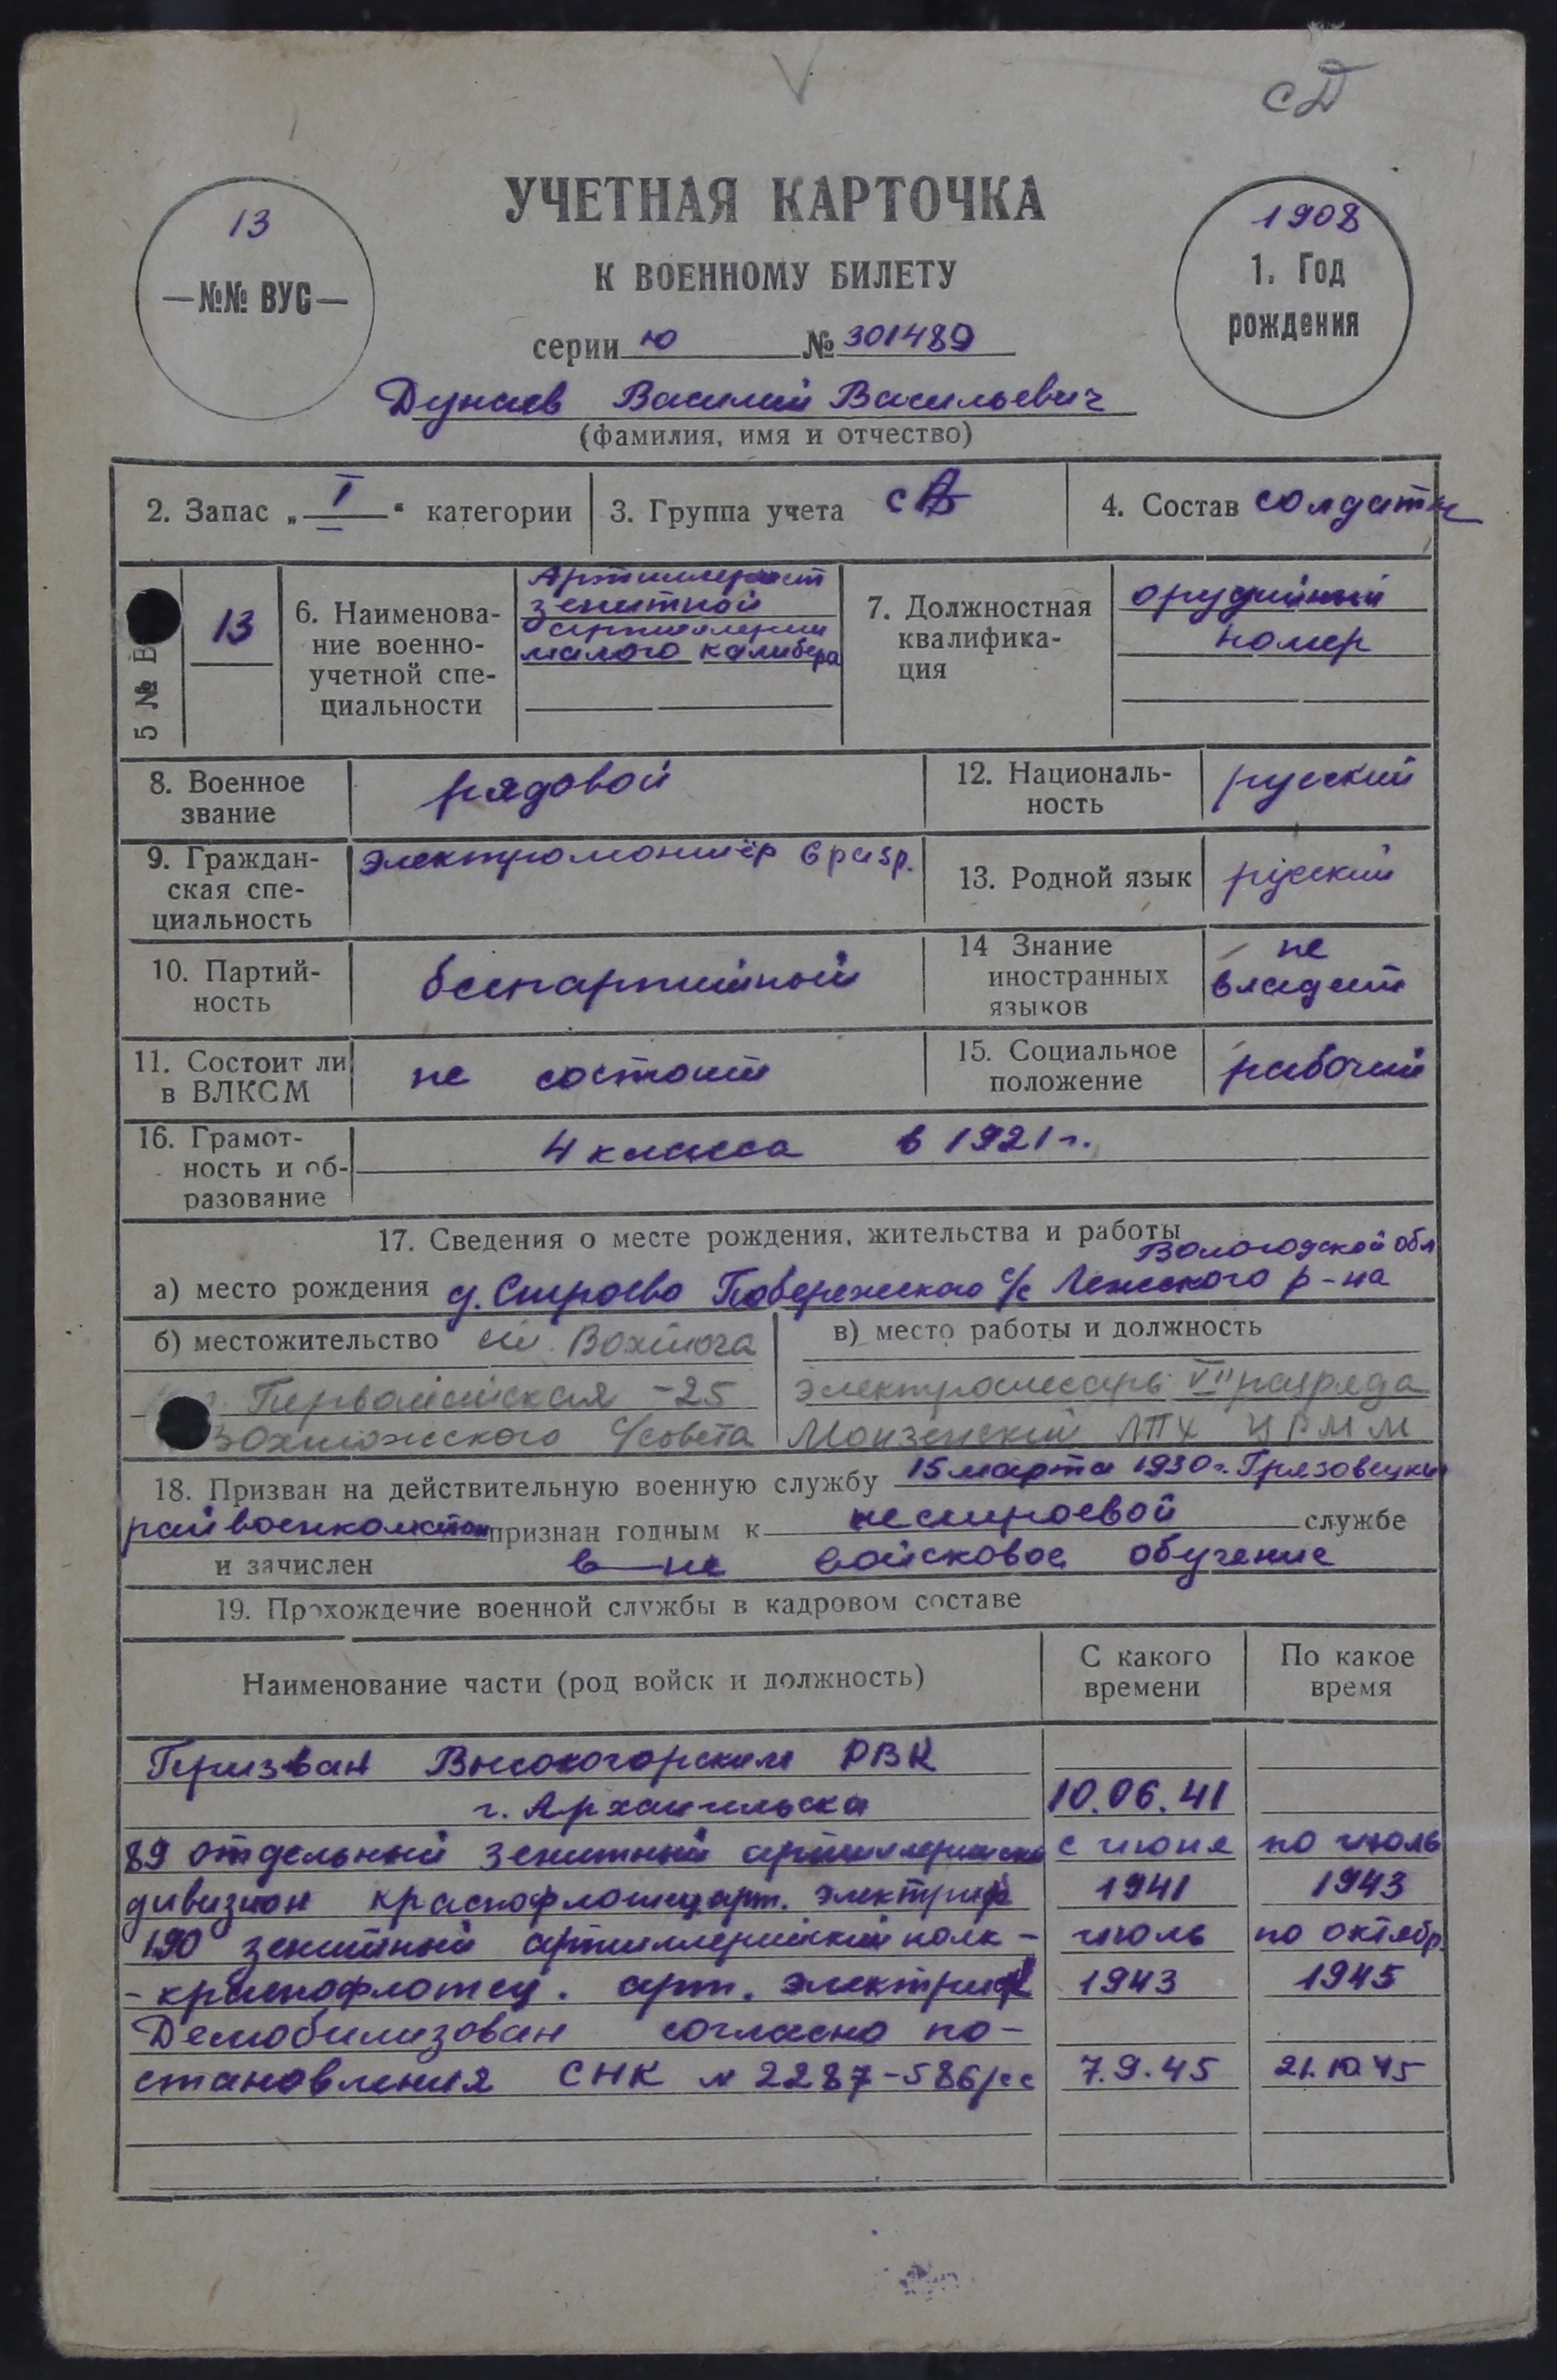 сД
УЧЕТНАЯ КАРТОЧКА
К ВОЕННОМУ БИЛЕТУ
13
—№№ ВУС—
1908
1. Год
рождения
серии ю № 301489
Дунаев Василий Васильевич
(фамилия, имя и отчество)
2. Запас „ I “ категории
3. Группа учета
4. Состав солдаты
5 № В
13
6. Наименова-
ние военно-
учетной спе-
циальности
Артиллерист
зенитной
артиллерии
малого калибера
7. Должностная
квалифика-
ция
орудийный
номер
8. Военное
звание
рядовой
12. Националь-
ность
русский
9. Граждан-
ская спе-
циальность
электромонтёр 6 разр.
13. Родной язык
русский
10. Партий-
ность
беспартийный
14 Знание
иностранных
языков
не
владеет
11. Состоит ли
в ВЛКСМ
не состоит
15. Социальное
положение
рабочий
16. Грамот-
ность и об-
разование
4 класса в 1921 г.
17. Сведения о месте рождения, жительства и работы
Вологодской обл
а) место рождения д. Строево Побережского с/с Лежского р-на
б) местожительство ст. Вохтога
Первомайская -25
Вохтожского с/совета
в) место работы и должность
электрослесарь VII разряда
Монзенский ЛПХ ЦРММ
18. Призван на действительную военную службу 15 марта 1930 г. Грязовецким
райвоенкоматом признан годным к нестроевой службе
и зачислен в—не войсковое обучение
19. Прохождение военной службы в кадровом составе
Наименование части (род войск и должность)
С какого
времени
По какое
время
Призван Высокогорским РВК
г. Архангельска 10.06.41
89 отдельный зенитный артиллерийский с июня по июль
дивизион краснофлотец арт. электрик 1941 1943
190 зенитный артиллерийский полк - июль по октябр.
- краснофлотец. арт. электрик 1943 1945
Демобилизован согласно по-
становления СНК № 2287-586/сс 7.9.45 21.10.45